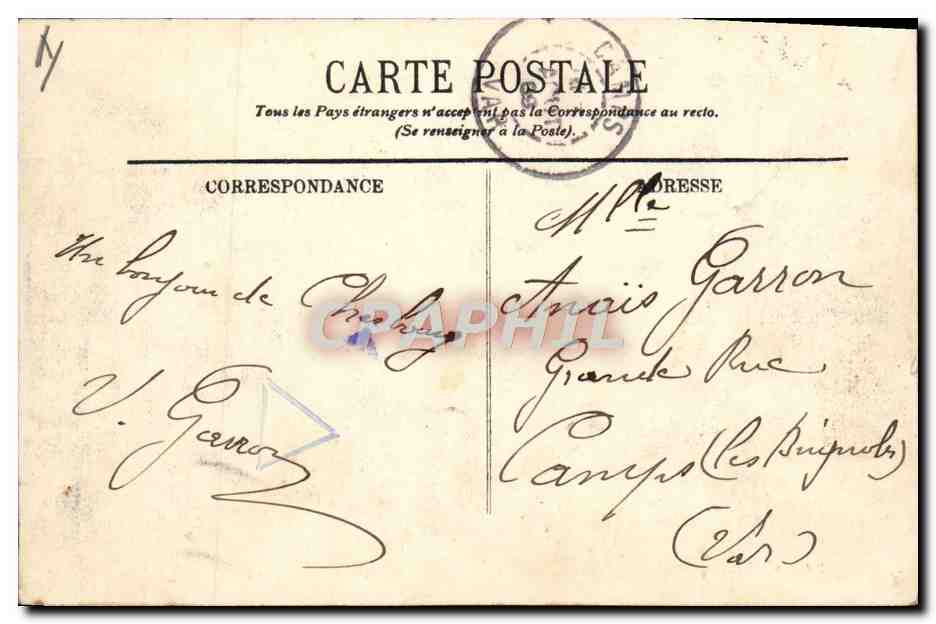 CARTE POSTALE
Tous les Pays étrangers n'acceptent pas la Correspondance au recto.
(Se renseigner à la Poste).
CORRESPONDANCE
Un bonjour de Cherbourg
V. Garron
ADRESSE
Mlle
Anaïs Garron
Grande Rue
Camps (les Brignoles)
(Var)
CAMPS
VAR
CPAPHIL